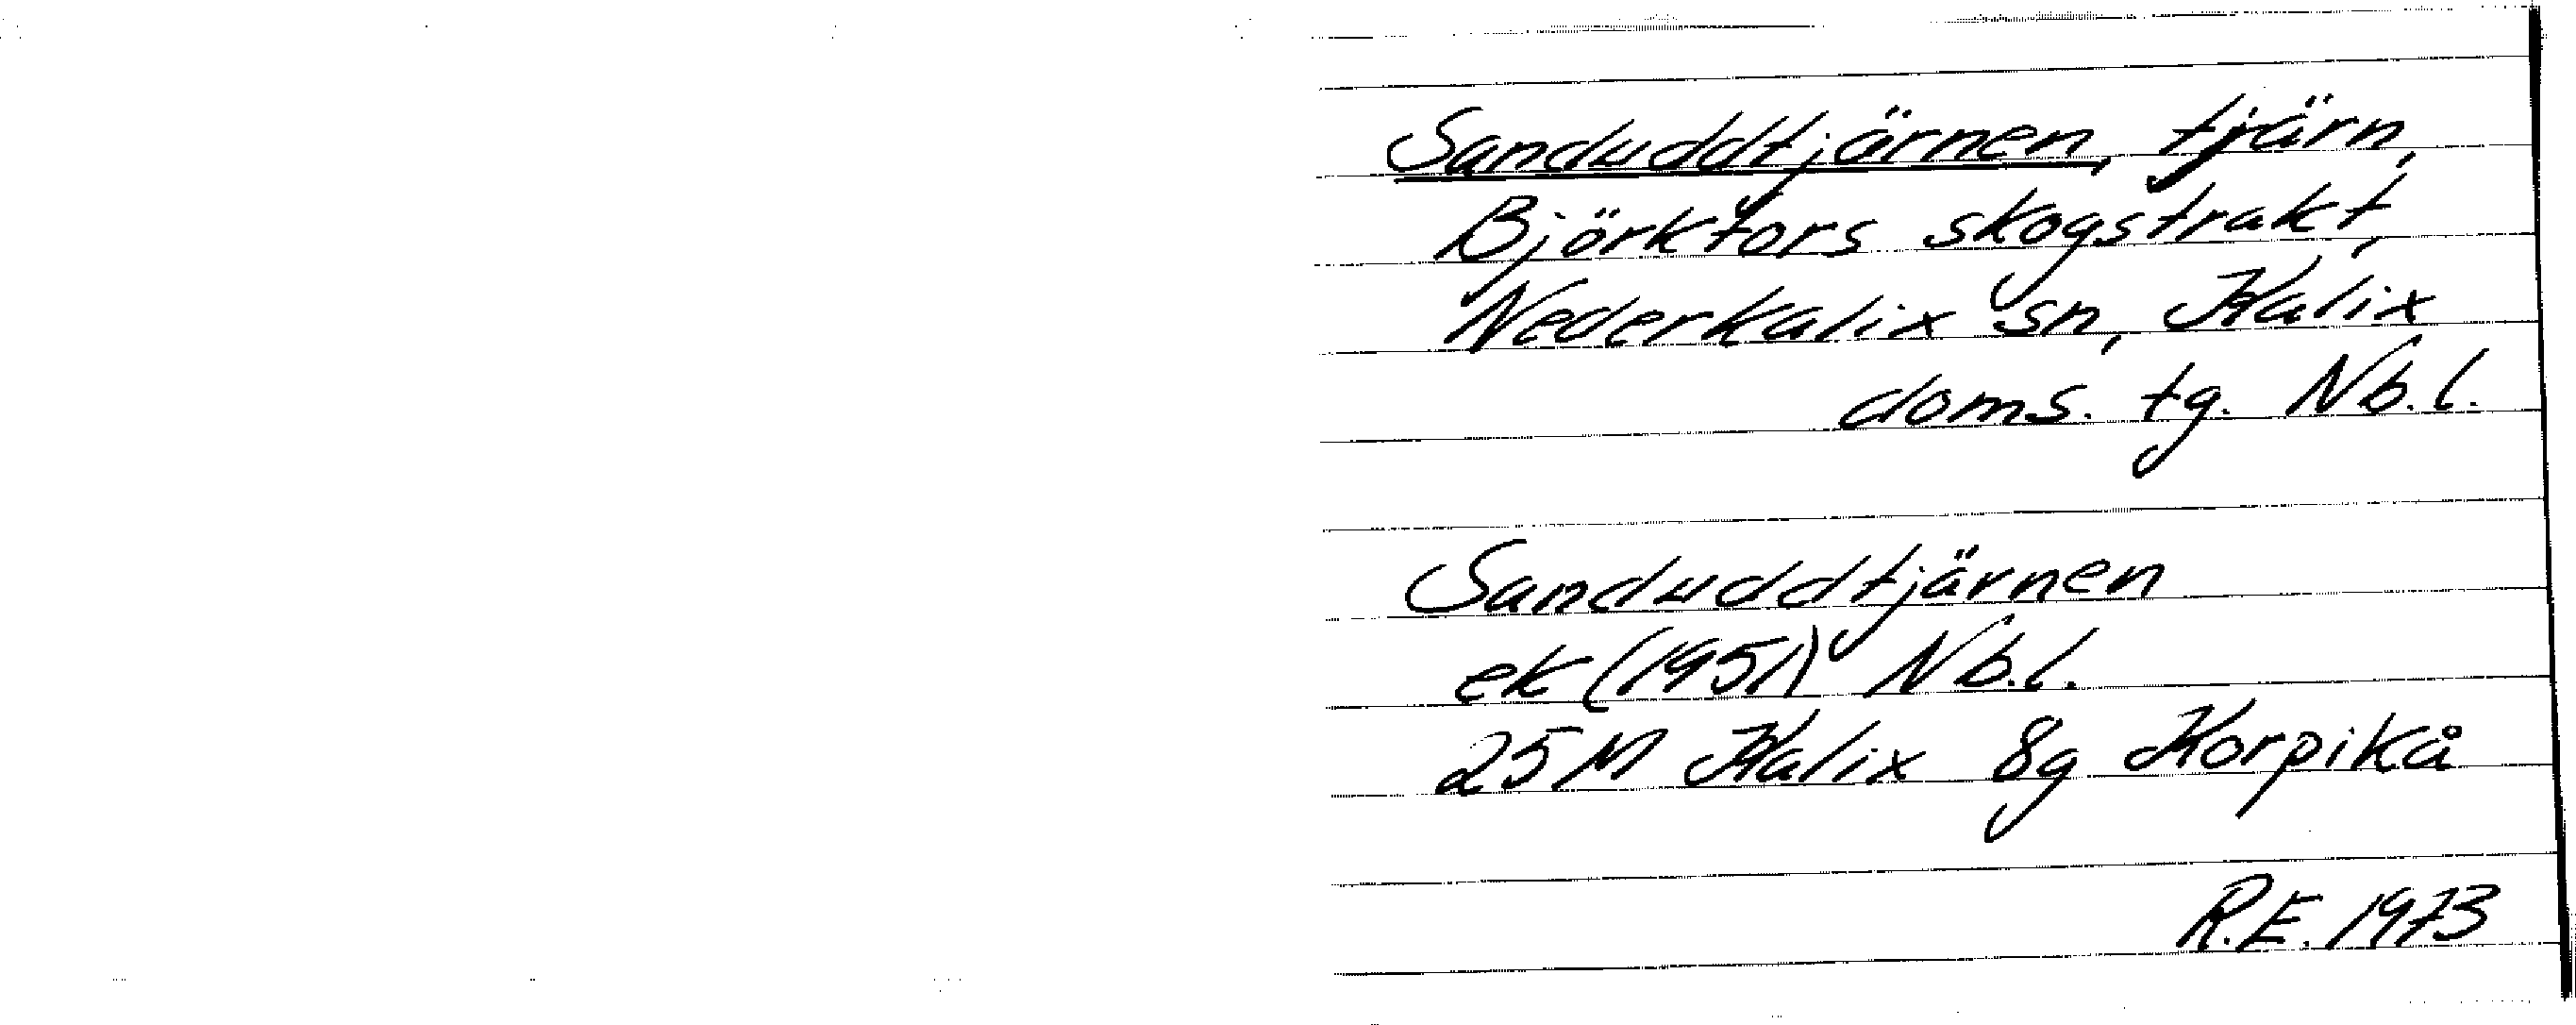 Sanduddtjärnen, tjärn,
Björkfors skogstrakt,
Nederkalix sn, Kalix
doms. tg. Nb.l.
Sanduddtjärnen
ek (1951) Nb.l.
25M Kalix 8g Korpikå
R.E. 1973